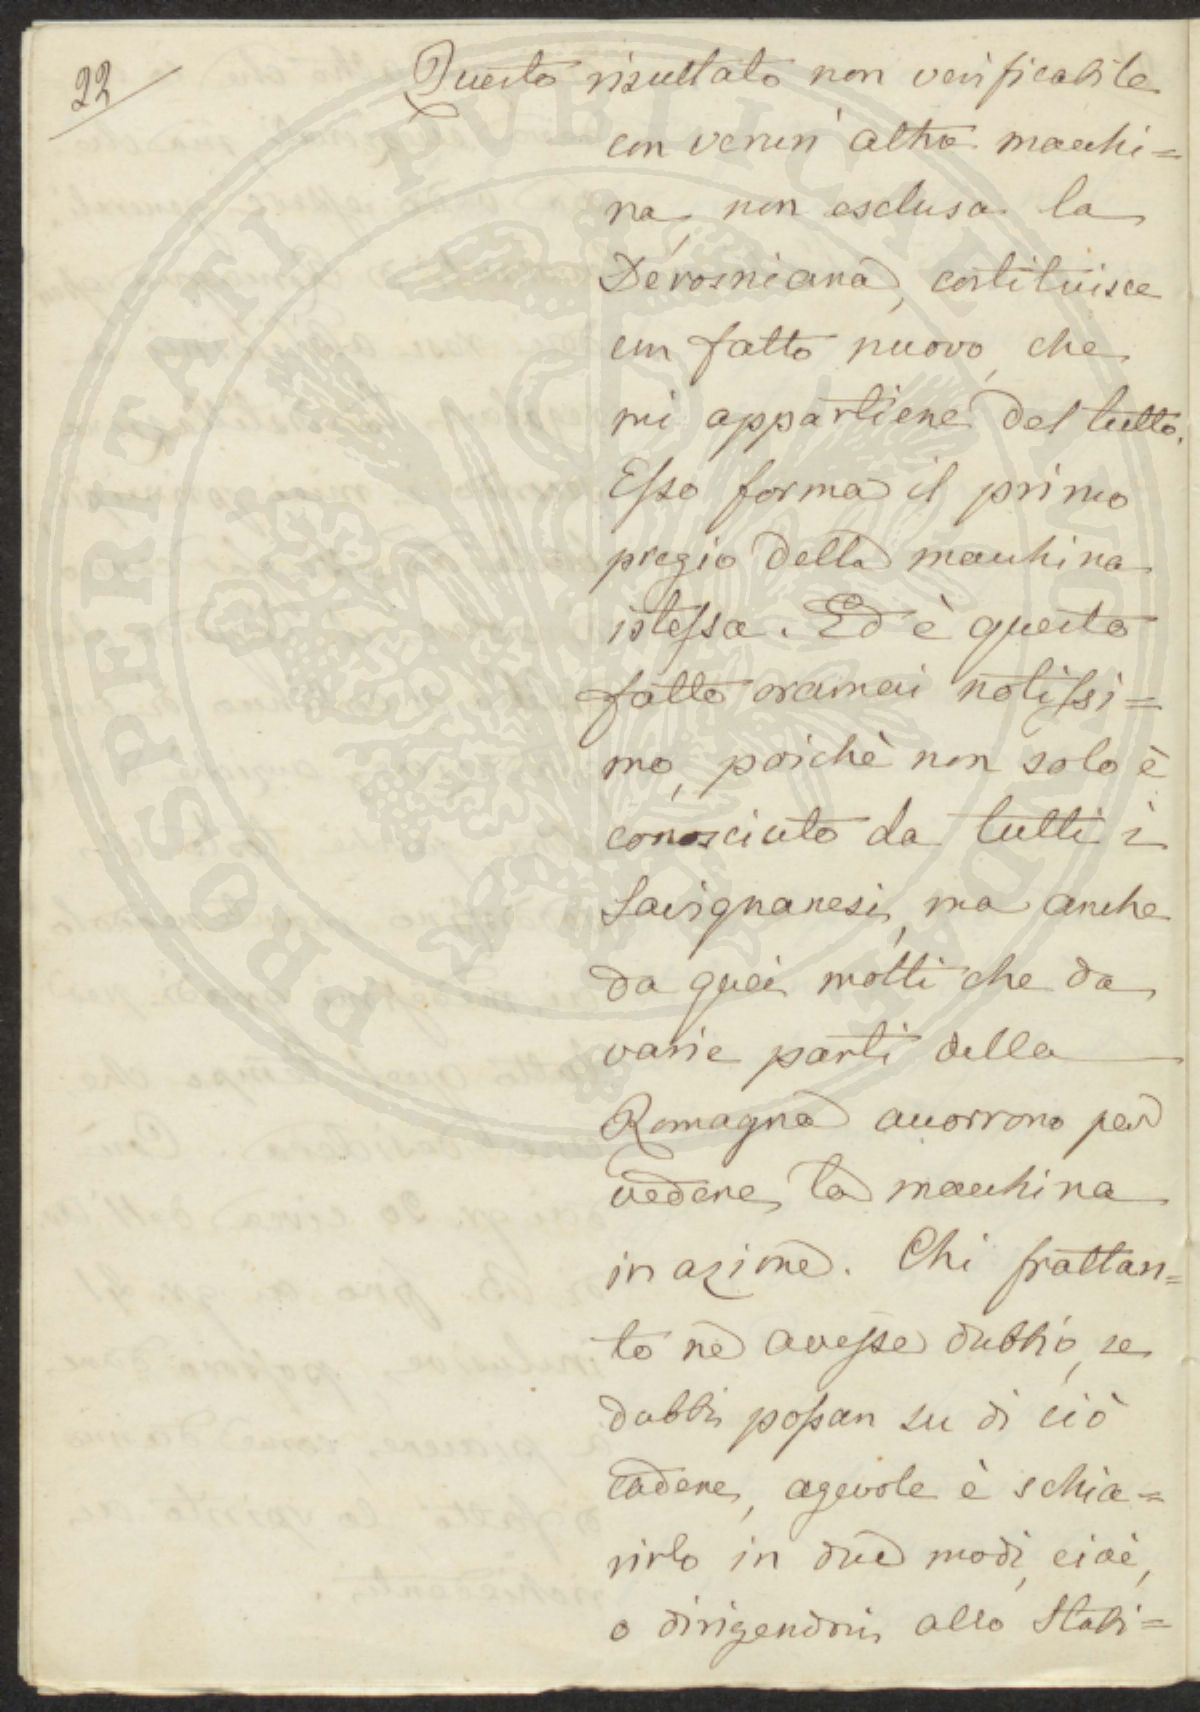 22
Questo risultato non verificabile
con verun' altra macchi=
na, non esclusa la
Derosniana, costituisce
un fatto nuovo, che
mi appartiene del tutto.
Esso forma il primo
pregio della macchina
istessa. Ed è questo
fatto oramai notissi=
mo, poichè non solo è
conosciuto da tutti i
Savignanesi, ma anche
da quei molti che da
varie parti della
Romagna accorrono per
vedere la macchina
in azione. Chi frattan=
to ne avesse dubbio, se
dubbi possan su di ciò
cadere, agevole è schia=
rirlo in due modi, cioè,
o dirigendosi allo Stabi=
PROSPERITATI PUBLICAE AUGENDAE